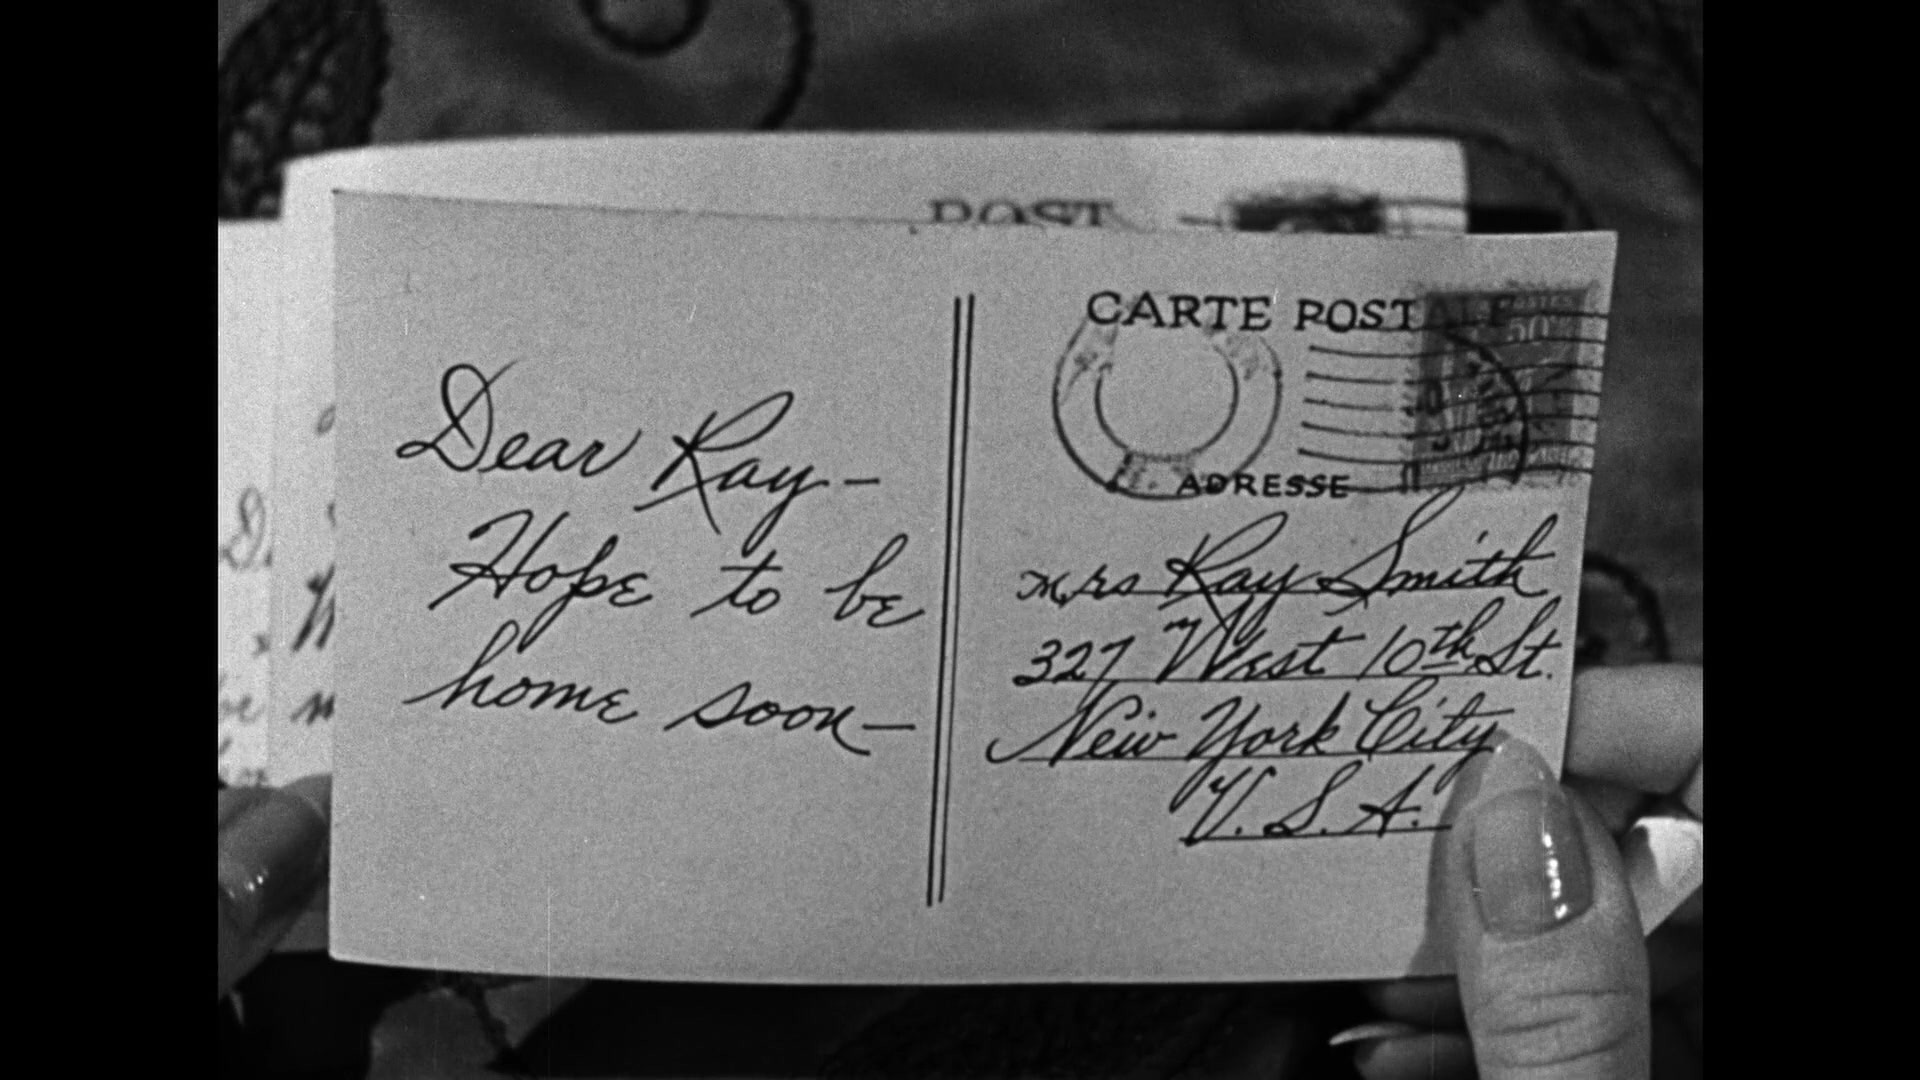 POST
CARTE POSTALE
ADRESSE
Dear Ray—
Hope to be
home soon—
Mrs Ray Smith
327 West 10th St.
New York City
U.S.A.